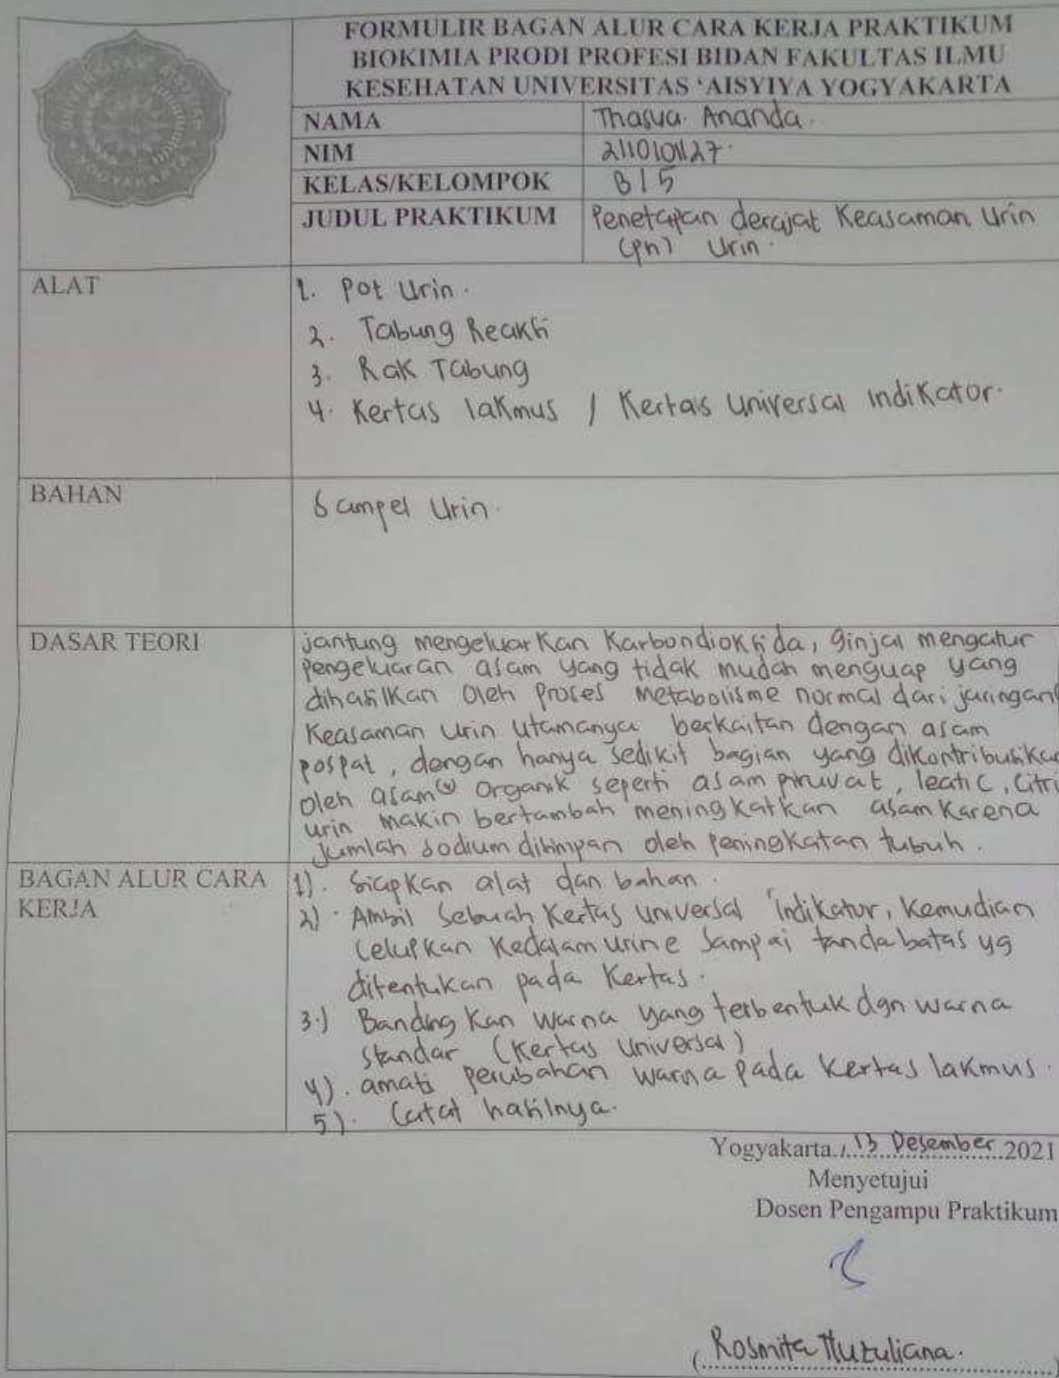 FORMULIR BAGAN ALUR CARA KERJA PRAKTIKUM
BIOKIMIA PRODI PROFESI BIDAN FAKULTAS ILMU
KESEHATAN UNIVERSITAS ‘AISYIYA YOGYAKARTA
NAMA Thasya Ananda.
NIM 2110101127.
KELAS/KELOMPOK B15
JUDUL PRAKTIKUM Penetapan derajat Keasaman Urin
(pH) Urin.
ALAT
1. Pot Urin.
2. Tabung Reaksi
3. Rak Tabung
4. Kertas lakmus / Kertas Universal Indikator.
BAHAN
Sampel Urin.
DASAR TEORI
jantung mengeluarkan Karbondioksida, ginjal mengatur
pengeluaran asam yang tidak mudah menguap yang
dihasilkan oleh Proses metabolisme normal dari jaringan
Keasaman urin utamanya berkaitan dengan asam
pospat, dengan hanya sedikit bagian yang dikontribusikan
oleh asam² organik seperti asam piruvat, leatic, Citri
urin makin bertambah meningkatkan asam karena
jumlah sodium dihimpan oleh peningkatan tubuh.
BAGAN ALUR CARA
KERJA
1). Siapkan alat dan bahan.
2). Ambil sebuah Kertas universal indikator, kemudian
celupkan kedalam urine sampai tanda batas yg
ditentukan pada kertas.
3.) Bandingkan warna yang terbentuk dgn warna
standar (kertas universal)
4). amati perubahan warna pada kertas lakmus.
5). Catat hasilnya.
Yogyakarta, 13 Desember 2021
Menyetujui
Dosen Pengampu Praktikum
(Rosmita Nuzuliana.)